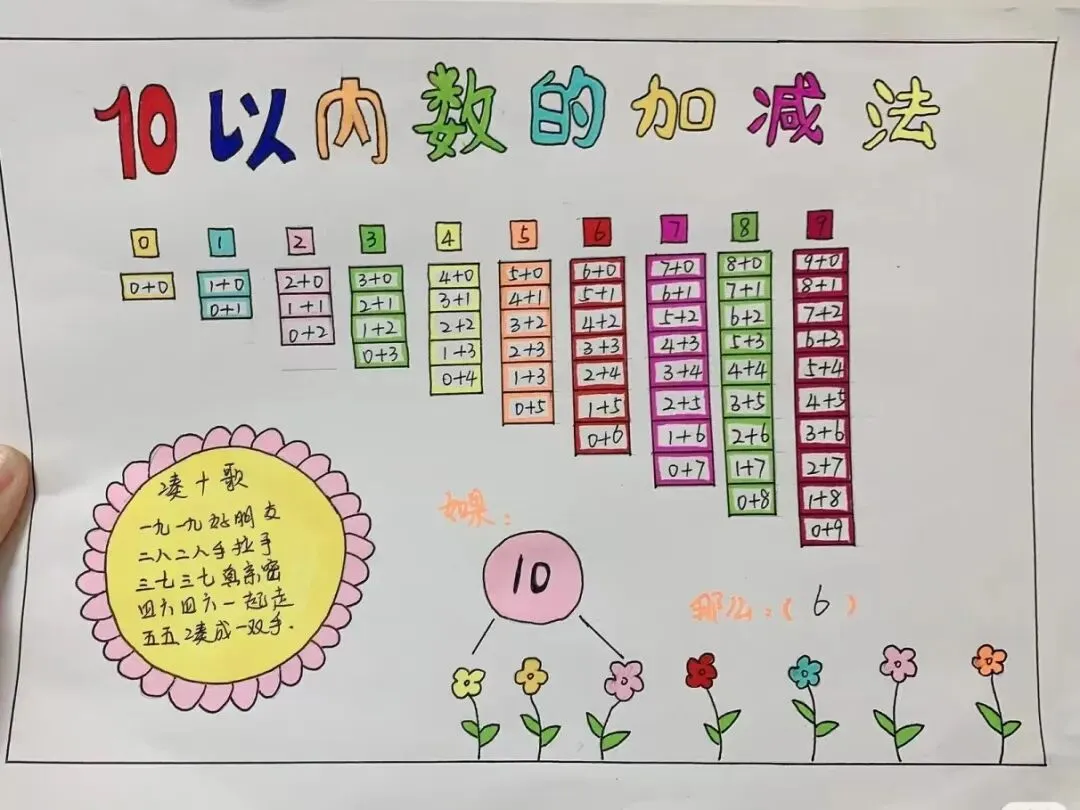 10以内数的加减法
0 1 2 3 4 5 6 7 8 9
0+0 1+0 2+0 3+0 4+0 5+0 6+0 7+0 8+0 9+0
0+1 1+1 2+1 3+1 4+1 5+1 6+1 7+1 8+1
0+2 1+2 2+2 3+2 4+2 5+2 6+2 7+2
0+3 1+3 2+3 3+3 4+3 5+3 6+3
0+4 1+3 2+4 3+4 4+4 5+4
0+5 1+5 2+5 3+5 4+5
0+6 1+6 2+6 3+6
0+7 1+7 2+7
0+8 1+8
0+9
凑十歌
一九一九好朋友
二八二八手拉手
三七三七真亲密
四六四六一起走
五五凑成一双手.
如果:
10
那么:(6)